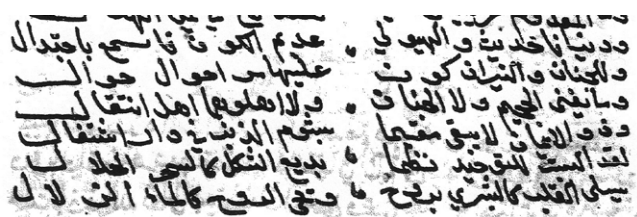 ودنيانا حديث والهيولي عديم الكون فاسمع باجتدال
وللجنان والنيران كون عليها مر احوال خوال
وما يفنى الجحيم ولا الجنان ولا اهلوهما اهل انتقال
وذو الايمان لا يبقى مقيما بشوم الذنب في دار اشتغال
لقد البست للتوحيد نظما بديع الشكل كالسحر الحلال
يسلي القلب كالبشرى بروح ويحي الروح كالماء الزلال